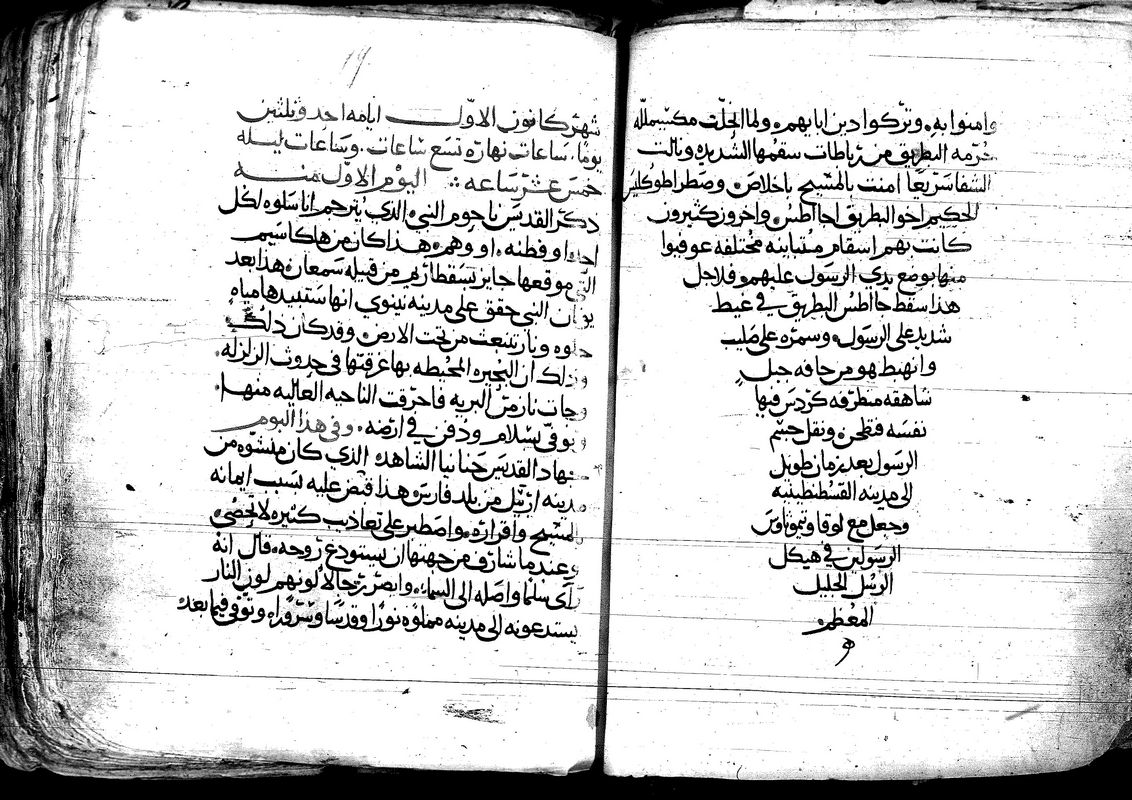 وامنوا به، وتركوا دين ابايهم، ولما انحلت مكسيمللّه
حُرمه البطريق من رباطات سقمها الشديده ونالت
الشفا سريعًا امنت بالمسيح باخلاص، وصطراطوكليس
الحكيم اخو البطريق اجااطس، واخروز كثيرون
كانت بهم اسقام متباينه مختلفه عوفيوا
منها بوضع يدي الرسول عليهم، فلاجل
هذا سقط جااطس البطريق في غيط
شديد على الرسول، وسمره على صليب
وانهبط هو من حافه جبل
شاهقه متطرفه كردس فيها
نفسه فتطحن، ونقل جسم
الرسول بعد زمان طويل
الى مدينه القسطنطينيه
وجعل مع لوقا وتيموثاوس
الرسولين في هيكل
الرسل الجليل
المعظم
19
شهر كانون الاول ايامه احد وثلثين
يومًا، ساعات نهاره تسع ساعات، وساعات ليله
خمس عشر ساعه :: اليوم الاول منه
ذكر القديس ناحوم النبي، الذي يُترجم انا سلوه لكل
احد او فطنه، او وهم، هذا كان من هلكاسيم
التي موقعها جايز بيسقطازيم من قبيله سمعان، هذا بعد
يونان النبي حقق على مدينه نينوى انها ستبيدها مياه
حلوه ونار تنبعث من تحت الارض، وقد كان ذلك
وذلك ان البحيره المحيطه بها غرقتها في حدوث الزلزله
وجات نار من البريه فاحرقت الناحيه العاليه منها
وتوفي بسلام ودفن في ارضه، وفي هذا اليوم
جهاد القديس حنانيا الشاهد، الذي كان منشوه من
مدينه ازبيل من بلد فارس، هذا قبض عليه بسبب ايمانه
بالمسيح واقراره، واصطبر على تعاذيب كثيره لا تحصى
وعندما شارف من جهتها ان يستودع روحه، قال انه
راى سلما واصله الى السماء، وابصر رجالا لونهم لون النار
يستدعونه الى مدينه مملوه نورًا وقدسًا وسرورًا، وتوفي فيما بعد